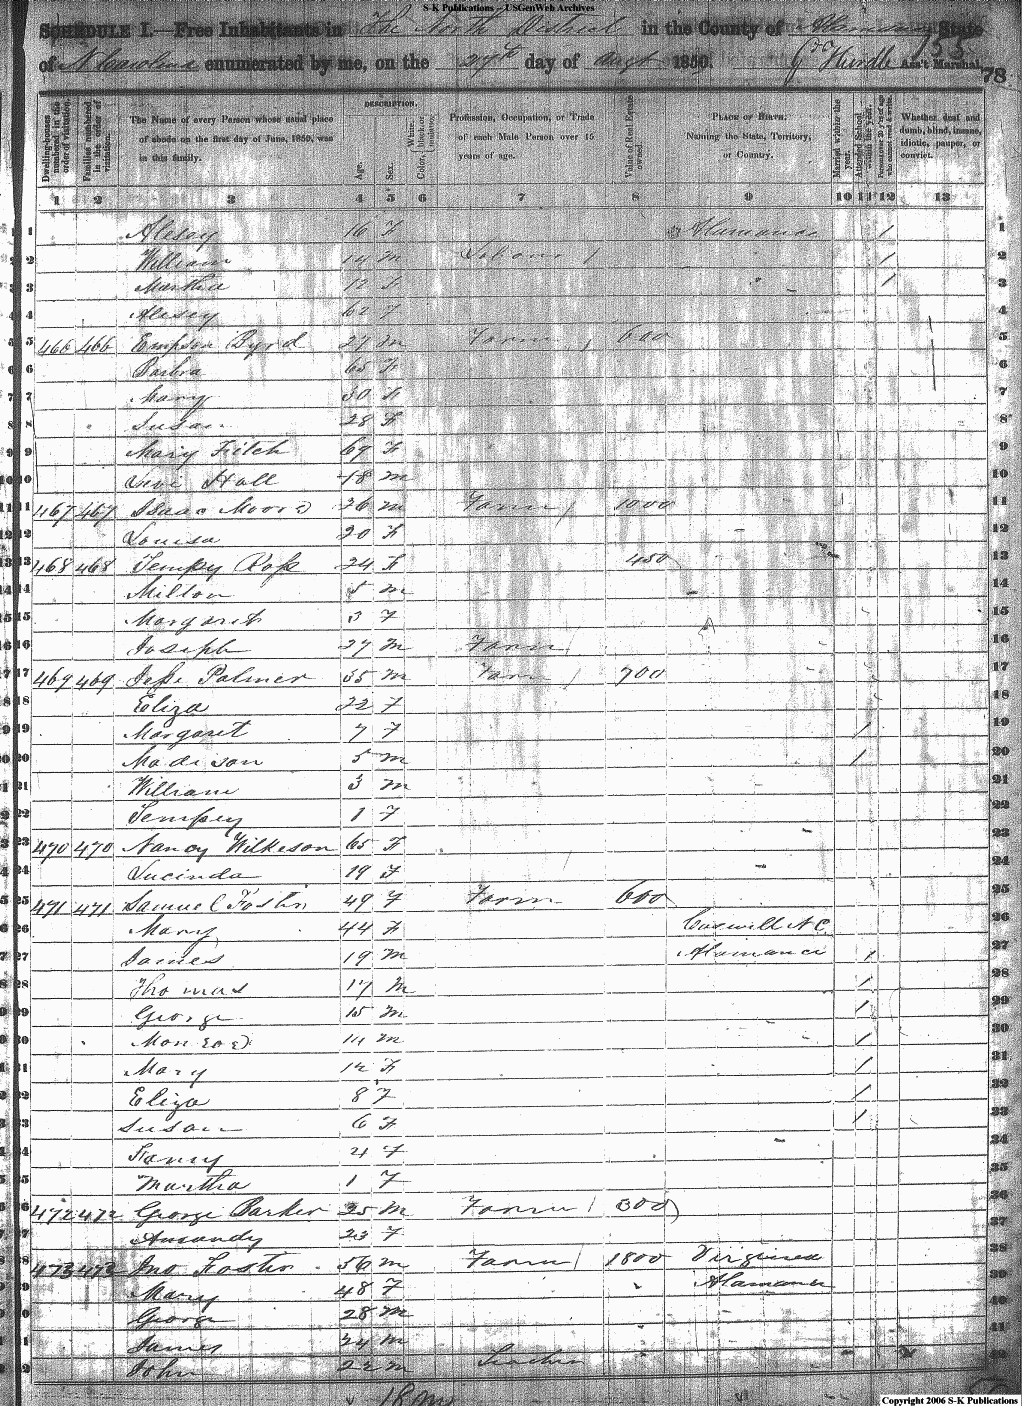 S-K Publications – USGenWeb Archives
SCHEDULE I.—Free Inhabitants in The North District in the County of Alamance State
of N Carolina enumerated by me, on the 27th day of Augt 1850. Ass't Marshal.
78
DESCRIPTION.
Dwelling-houses numbered in the order of visitation.
Families numbered in the order of visitation.
The Name of every Person whose usual place of abode on the first day of June, 1850, was in this family.
Age.
Sex.
White, black, or mulatto. Color
Profession, Occupation, or Trade of each Male Person over 15 years of age.
Value of Real Estate owned.
PLACE OF BIRTH. Naming the State, Territory, or Country.
Married within the year.
Attended School within the year.
Persons over 20 y'rs of age who cannot read & write.
Whether deaf and dumb, blind, insane, idiotic, pauper, or convict.
1 2 3 4 5 6 7 8 9 10 11 12 13
1 Alesey 16 F Alamance 1 1
2 William 14 M 1 2
3 Martha 12 F 1 3
4 Alesey 62 F 4
5 466 466 Empson Byrd 27 M Farm 600 5
6 Barbra 65 F 6
7 Mary 30 F 7
8 Susan 28 F 8
9 Mary Fitch 69 F 9
10 Levi Hall 18 M 10
11 467 467 Isaac Moore 26 M Farm 1000 11
12 Louisa 20 F 12
13 468 468 Tempy Ross 24 F 450 13
14 Milton 5 M 14
15 Margaret 3 F 15
16 Joseph 27 M Farm 16
17 469 469 Jesse Palmer 35 M Farm 700 17
18 Eliza 22 F 18
19 Margaret 7 F 1 19
20 Madison 5 M 1 20
21 William 3 M 21
22 Tempey 1 F 22
23 470 470 Nancy Wilkeson 65 F 23
24 Lucinda 19 F 24
25 471 471 Samuel Foster 49 F Farm 600 25
26 Mary 44 F Caswell N C 26
27 James 19 M Alamance 1 27
28 Thomas 17 M 1 28
29 George 15 M 1 29
30 Monroe 14 M 1 30
31 Mary 12 F 1 31
32 Eliza 8 F 1 32
33 Susan 6 F 1 33
34 Fanny 4 F 34
35 Martha 1 F 35
36 472 472 George Barker 25 M Farm 300 36
37 Amandy 23 F 37
38 473 473 Jno Foster 56 M Farm 1800 Virginia 38
39 Mary 48 F Alamance 39
40 George 28 M 40
41 James 24 M 41
42 John 22 M Teacher 42
18 m
Copyright 2006 S-K Publications